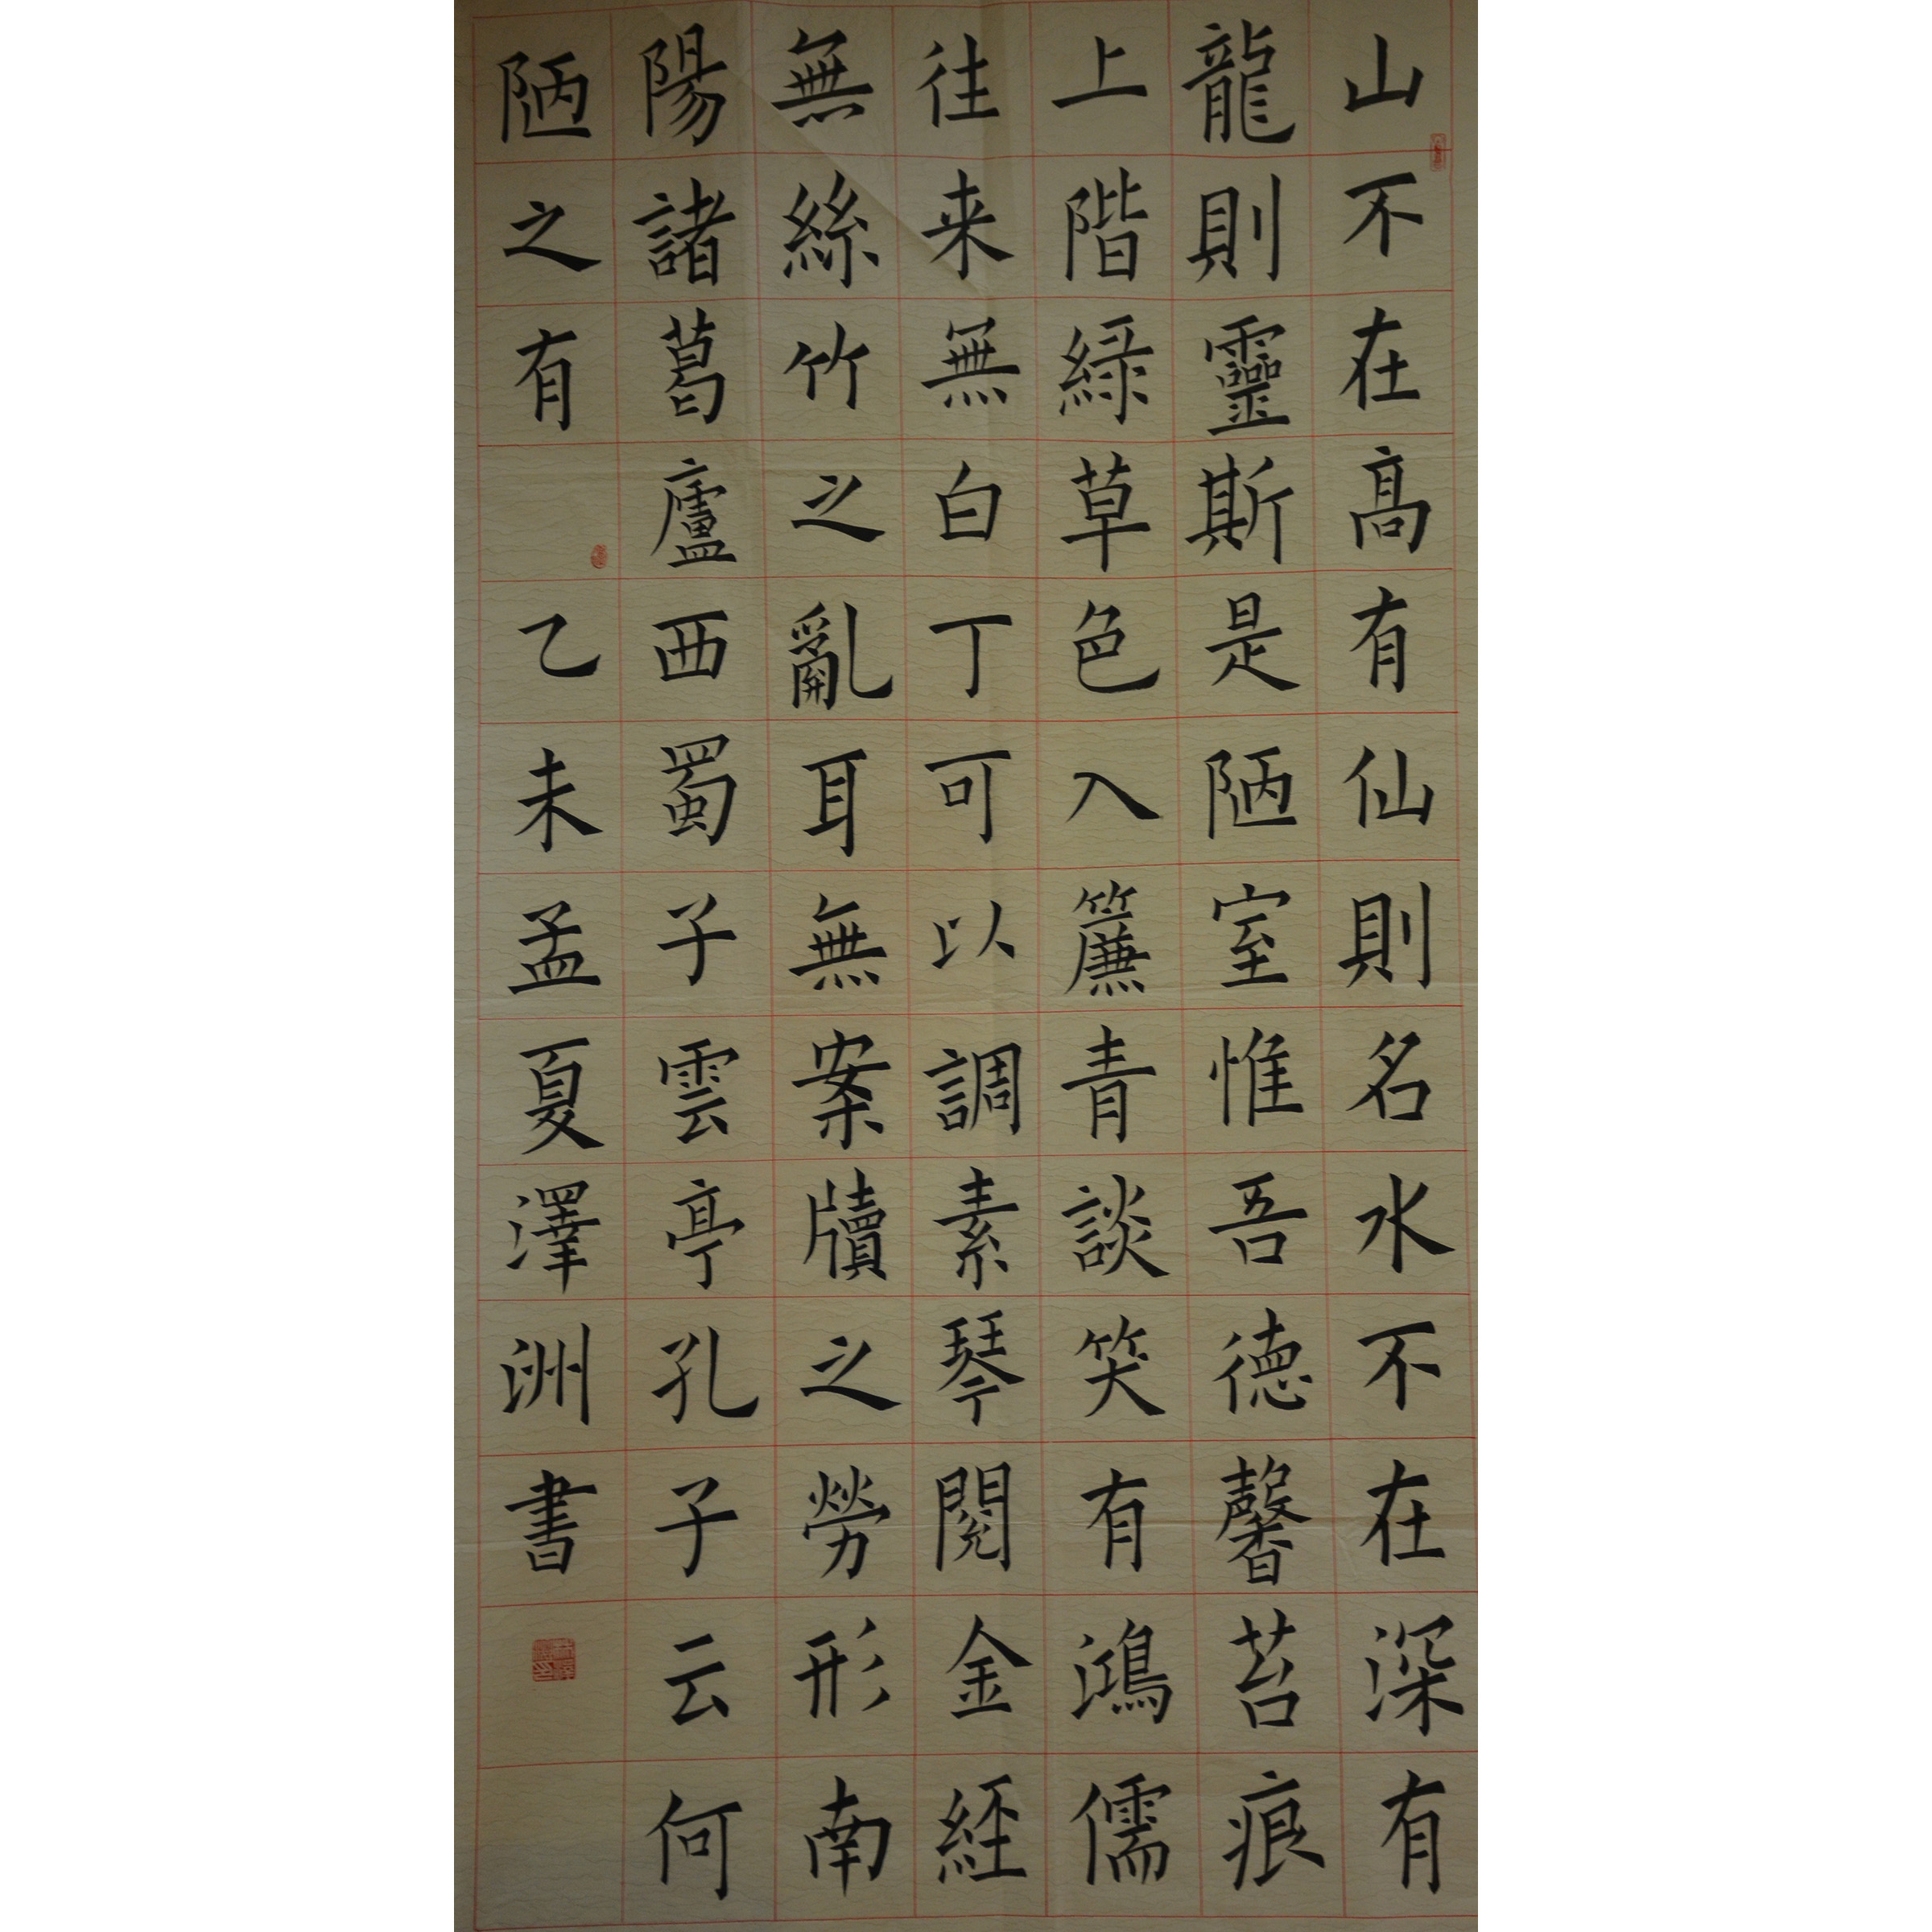 山不在高有仙則名水不在深有
龍則靈斯是陋室惟吾德馨苔痕
上階綠草色入簾青談笑有鴻儒
往来無白丁可以調素琴閱金經
無絲竹之亂耳無案牘之勞形南
陽諸葛廬西蜀子雲亭孔子云何
陋之有
乙未孟夏澤洲書